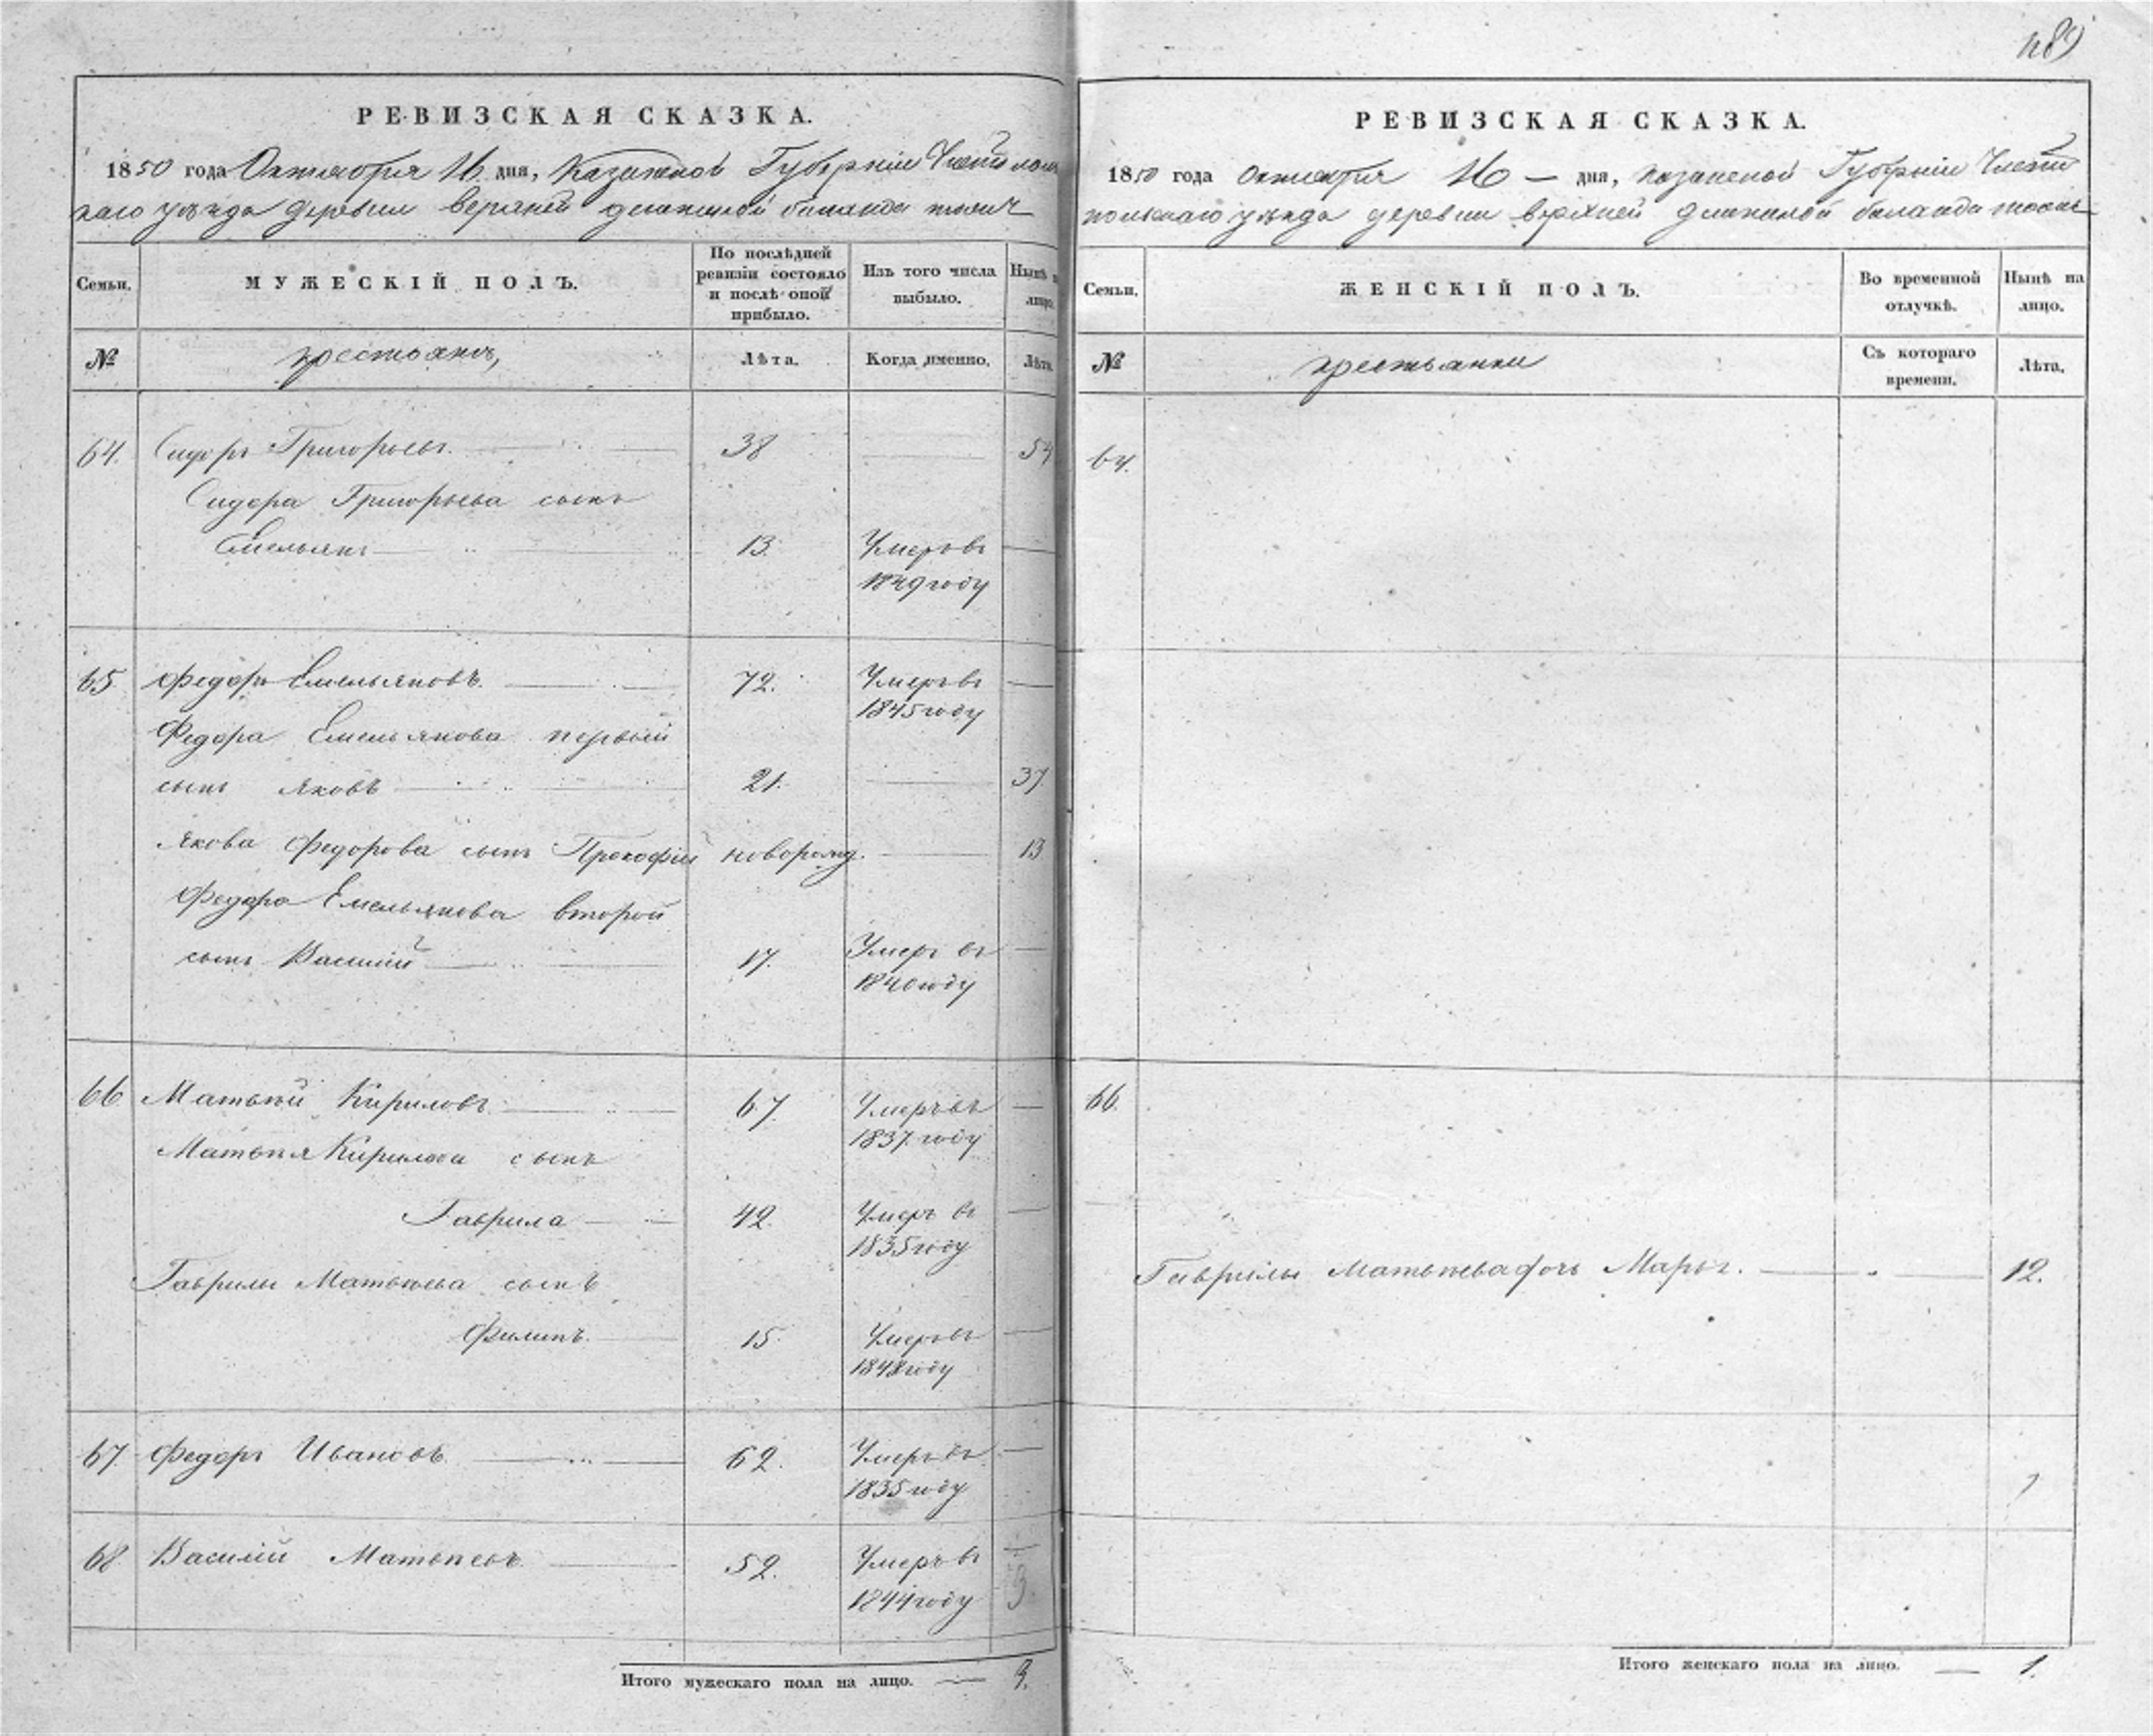 489
РЕВИЗСКАЯ СКАЗКА.
1850 года Октября 16 дня, Казанской Губерніи Чистополь
скаго уѣзда деревни верхней
Семьи.
МУЖЕСКІЙ ПОЛЪ.
По послѣдней ревизіи состояло и послѣ оной прибыло.
Изъ того числа выбыло.
Нынѣ на лицо.
№
крестьянъ,
Лѣта.
Когда именно.
Лѣта.
64. Сидоръ Григорьевъ. 38 54
Сидора Григорьева сынъ
Емельянъ 13. Умеръ въ
1849 году
65. Федоръ Емельяновъ. 72. Умеръ въ
1845 году
Федора Емельянова первый
сынъ Яковъ 21. 37
Якова Федорова сынъ Прокофій новорожд. 13
Федора Емельянова второй
сынъ Василий 17. Умеръ въ
1840 году
66 Матвѣй Кириловъ 67. Умеръ въ
1837 году
Матвѣя Кирилова сынъ
Гаврила 42. Умеръ въ
1835 году
Гаврилы Матвѣева сынъ
Филипъ. 15. Умеръ въ
1848 году
67 Федоръ Ивановъ 62. Умеръ въ
1835 году
68 Василий Матвѣевъ 52. Умеръ въ
1844 году
3.
Итого мужескаго пола на лицо. — 3.
РЕВИЗСКАЯ СКАЗКА.
1850 года Октября 16 — дня, Казанской Губерніи Чисто
польскаго уѣзда деревни верхней
Семьи.
ЖЕНСКІЙ ПОЛЪ.
Во временной отлучкѣ.
Нынѣ на лицо.
№
крестьянки
Съ котораго времени.
Лѣта.
64.
66.
Гаврилы Матвѣева дочь Марья. 12.
1
Итого женскаго пола на лицо. — 1.